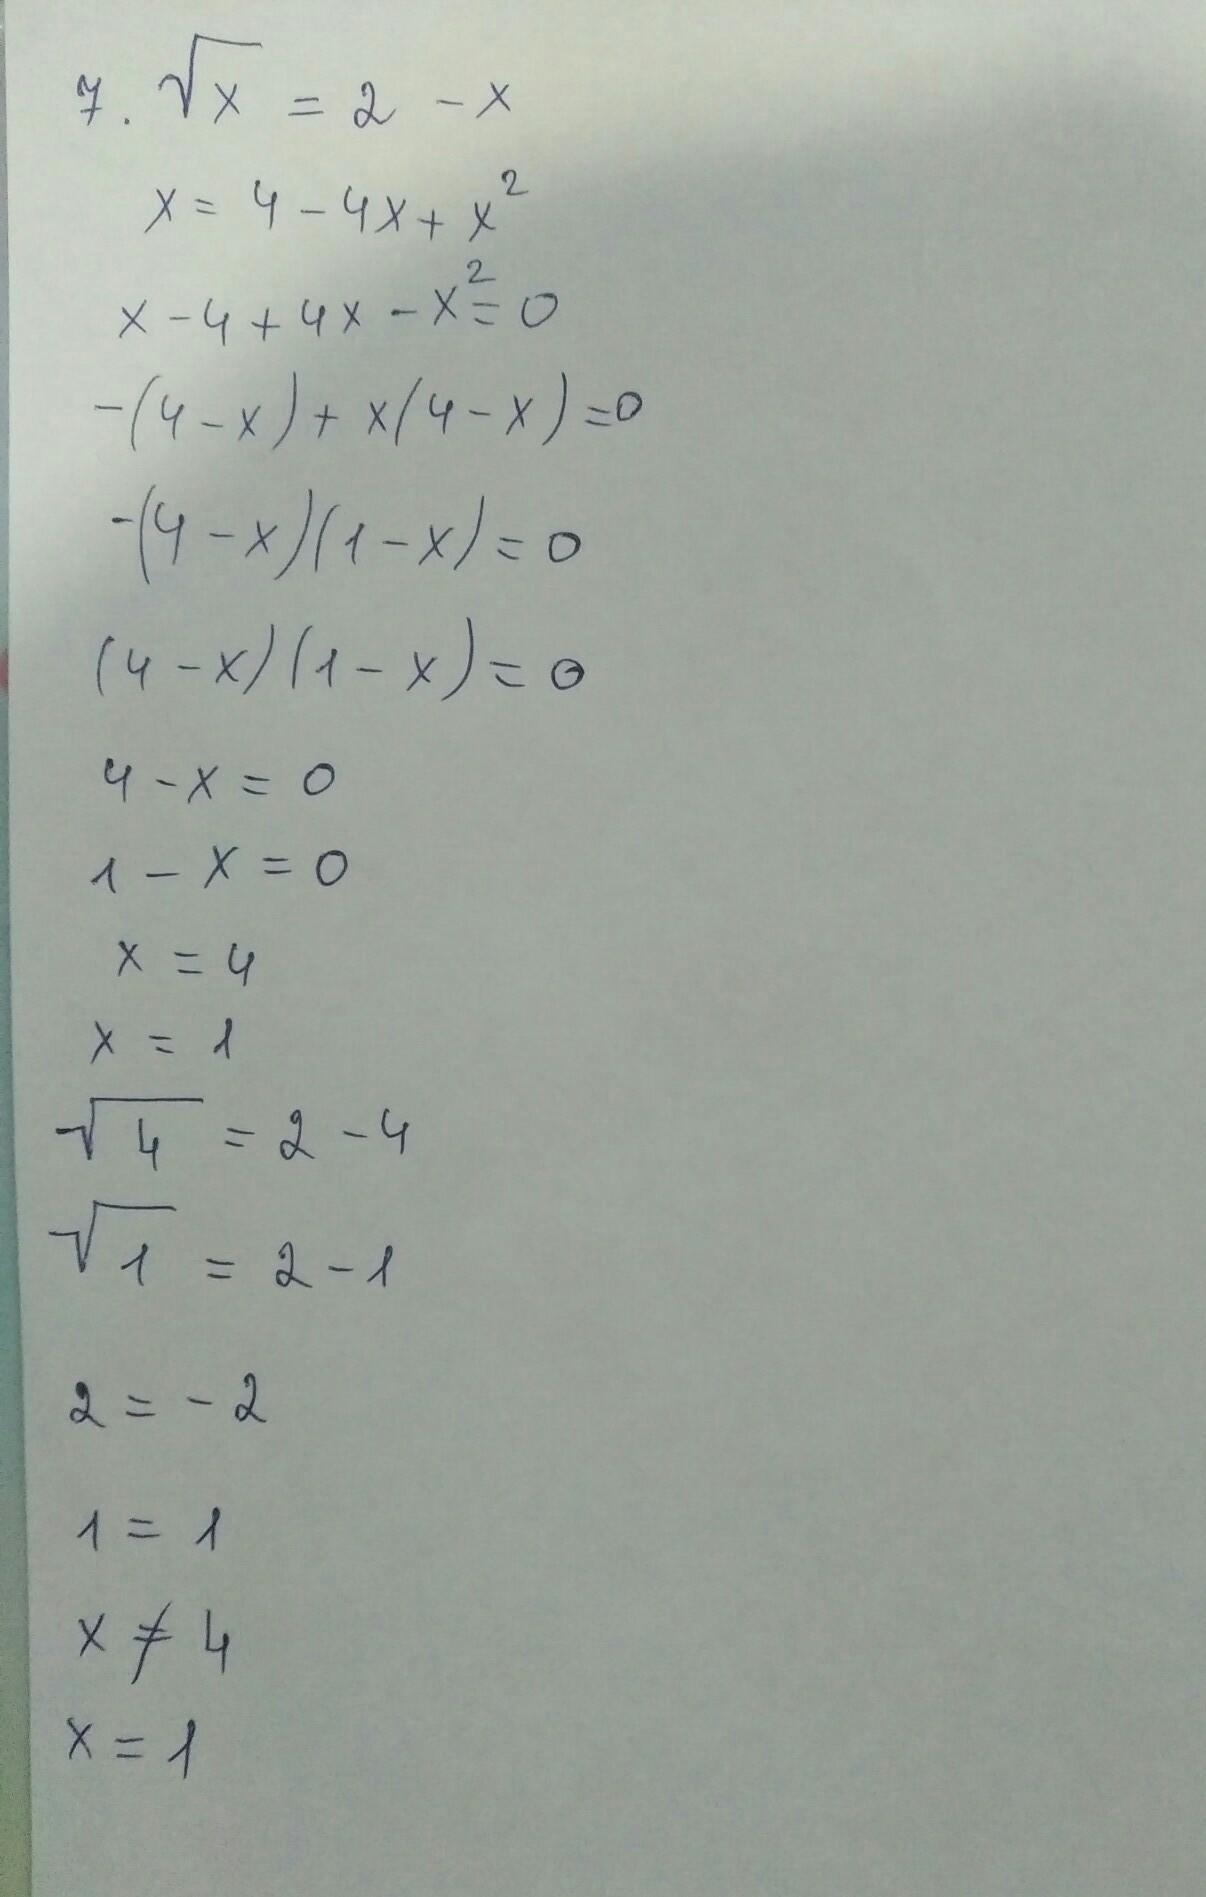 7. √x = 2 - x
x = 4 - 4x + x²
x - 4 + 4x - x² = 0
-(4 - x) + x(4 - x) = 0
-(4 - x)(1 - x) = 0
(4 - x)(1 - x) = 0
4 - x = 0
1 - x = 0
x = 4
x = 1
√4 = 2 - 4
√1 = 2 - 1
2 = - 2
1 = 1
x ≠ 4
x = 1